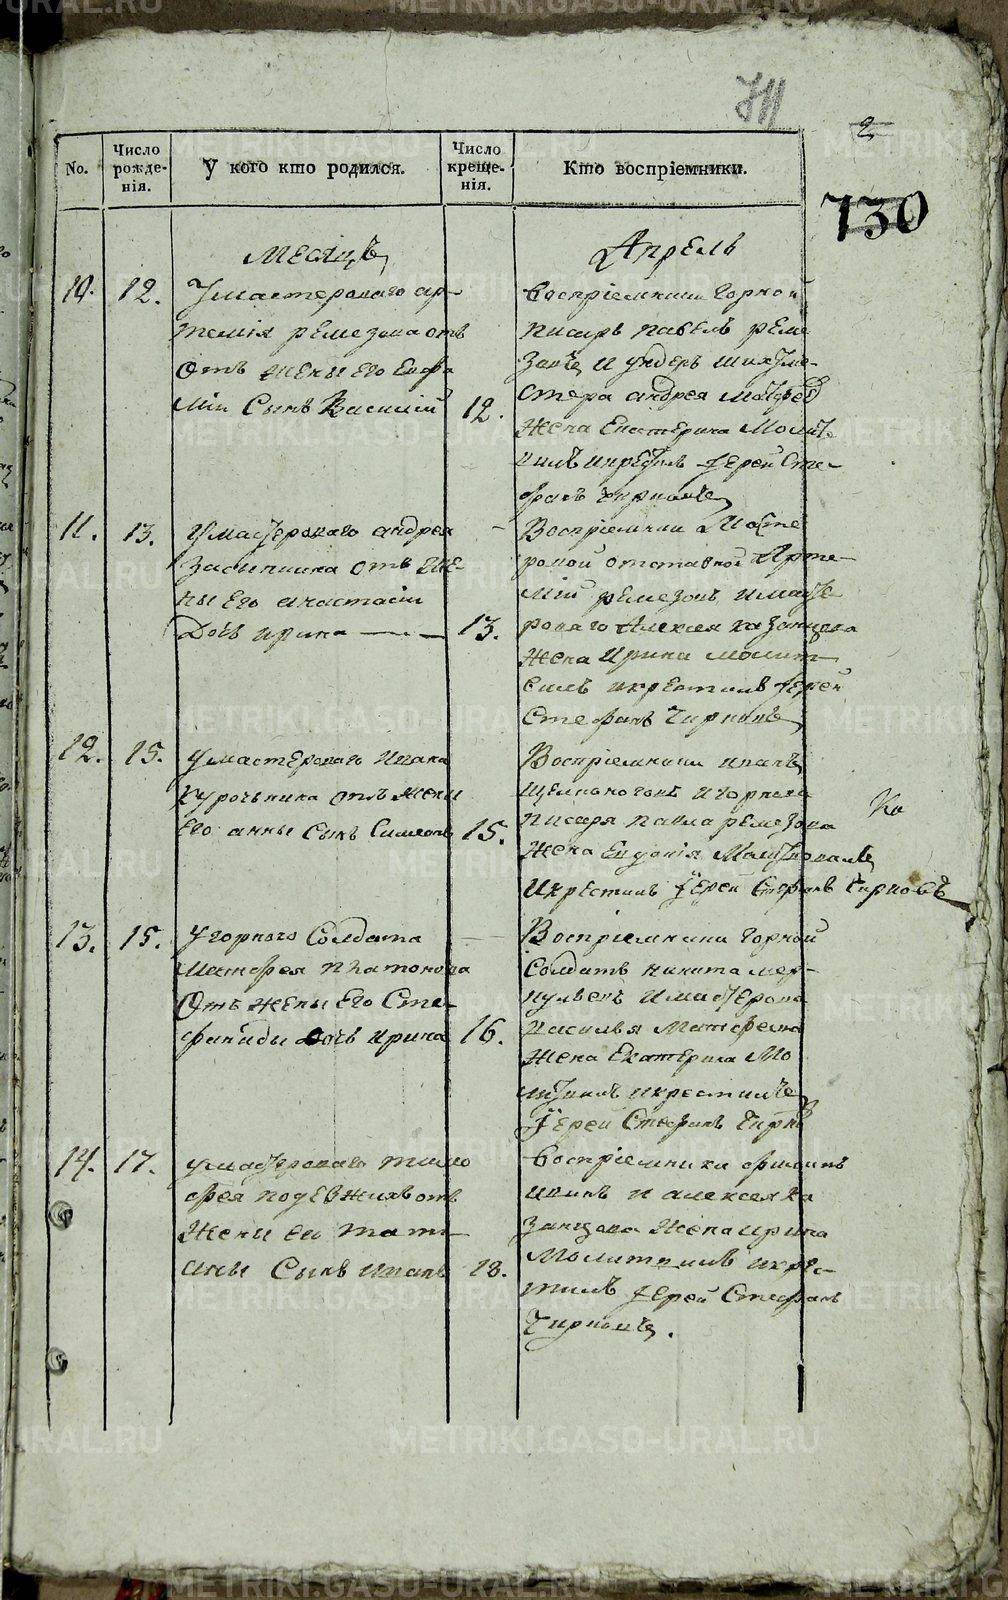 METRIKI.GASO-URAL.RU
711
2
730
No.
Число рожде-нія.
У кого кто родился.
Число креще-нія.
Кто воспріемники.
Месяцъ
Апрель
10.
12.
Умастероваго ар-
темія ремезова отъ
Отъ жены Его Евфи
міи Сынъ Василій
12.
Воспріемники Горной
писарь павелъ реме
зовъ и ундеръ шихтме-
стера андрея
жена Екатерина Молит
вилъ икрестилъ Іерей Сте-
фанъ Чирковъ
11.
13.
Умастероваго андрея
отъ же-
ны Его анастасіи
Дочь ирина
13.
Воспріемники Масте
ровой отставной Арте-
мій ремезовъ имасте
роваго Алексея казанцова
жена Ирина молит
вилъ икрестилъ Іерей
Стефанъ Чирковъ
12.
15.
Умастероваго Ивана
курочькина отъ жены
Его анны Сынъ Симеонъ
15.
Воспріемники иванъ
Щелконоговъ игорнаго
писаря павла ремезова
жена Евдокія Молитвовалъ
Икрестилъ Іерей Стефанъ Чирковъ
13.
15.
Угорнаго Солдата
Матфея платонова
Отъ жены Его Сте-
фаниды дочь ирина
16.
Воспріемники Горной
Солдатъ никита мер-
кульевъ имастерова
василья Матфеева
жена Екатерина Мо
литвилъ икрестилъ
Іерей Стефанъ Чирков
14.
17.
Умастероваго тимо
фея отъ
жены Его тати
аны Сынъ иванъ
18.
Воспріемники филипъ
и алексея ка
занцова жена ирина
Молитвилъ икрес-
тилъ Іерей Стефанъ
Чирковъ.